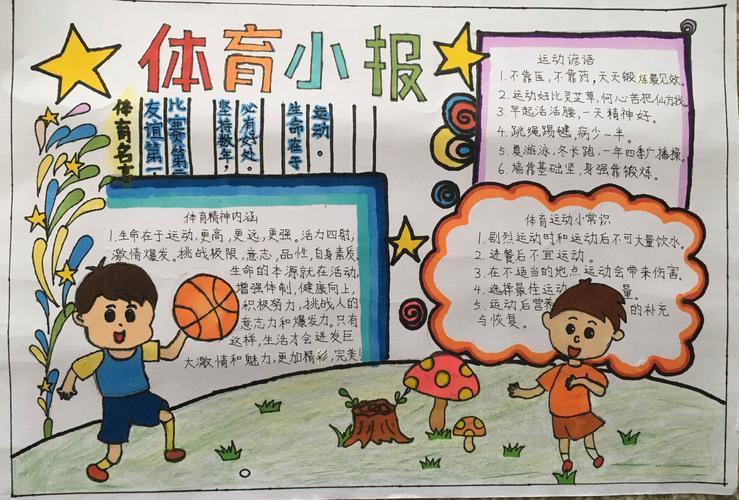 体育小报
体育名言
友谊第一
比赛第二
坚持数年，
必有好处。
生命在于
运动。
运动谚语
1.不靠医，不靠药，天天锻炼最见效。
2.运动好比灵芝草，何必苦把仙方找。
3.早起活活腰，一天精神好。
4.跳绳踢毽，病少一半。
5.夏游泳，冬长跑，一年四季广播操。
6.墙靠基础坚，身强靠锻炼。
体育精神内涵
1.生命在于运动，更高，更远，更强。活力四射，
激情爆发。挑战极限，意志，品性，自身素质。
生命的本源就在活动，
增强体制，健康向上，
积极努力，挑战人的
意志力和爆发力。只有
这样，生活才会迸发巨
大激情和魅力，更加精彩，完美！
体育运动小常识
1.剧烈运动时和运动后不可大量饮水。
2.进餐后不宜运动。
3.在不适当的地点运动会带来伤害。
4.选择最佳运动 量。
5.运动后营养 的补充
与恢复。